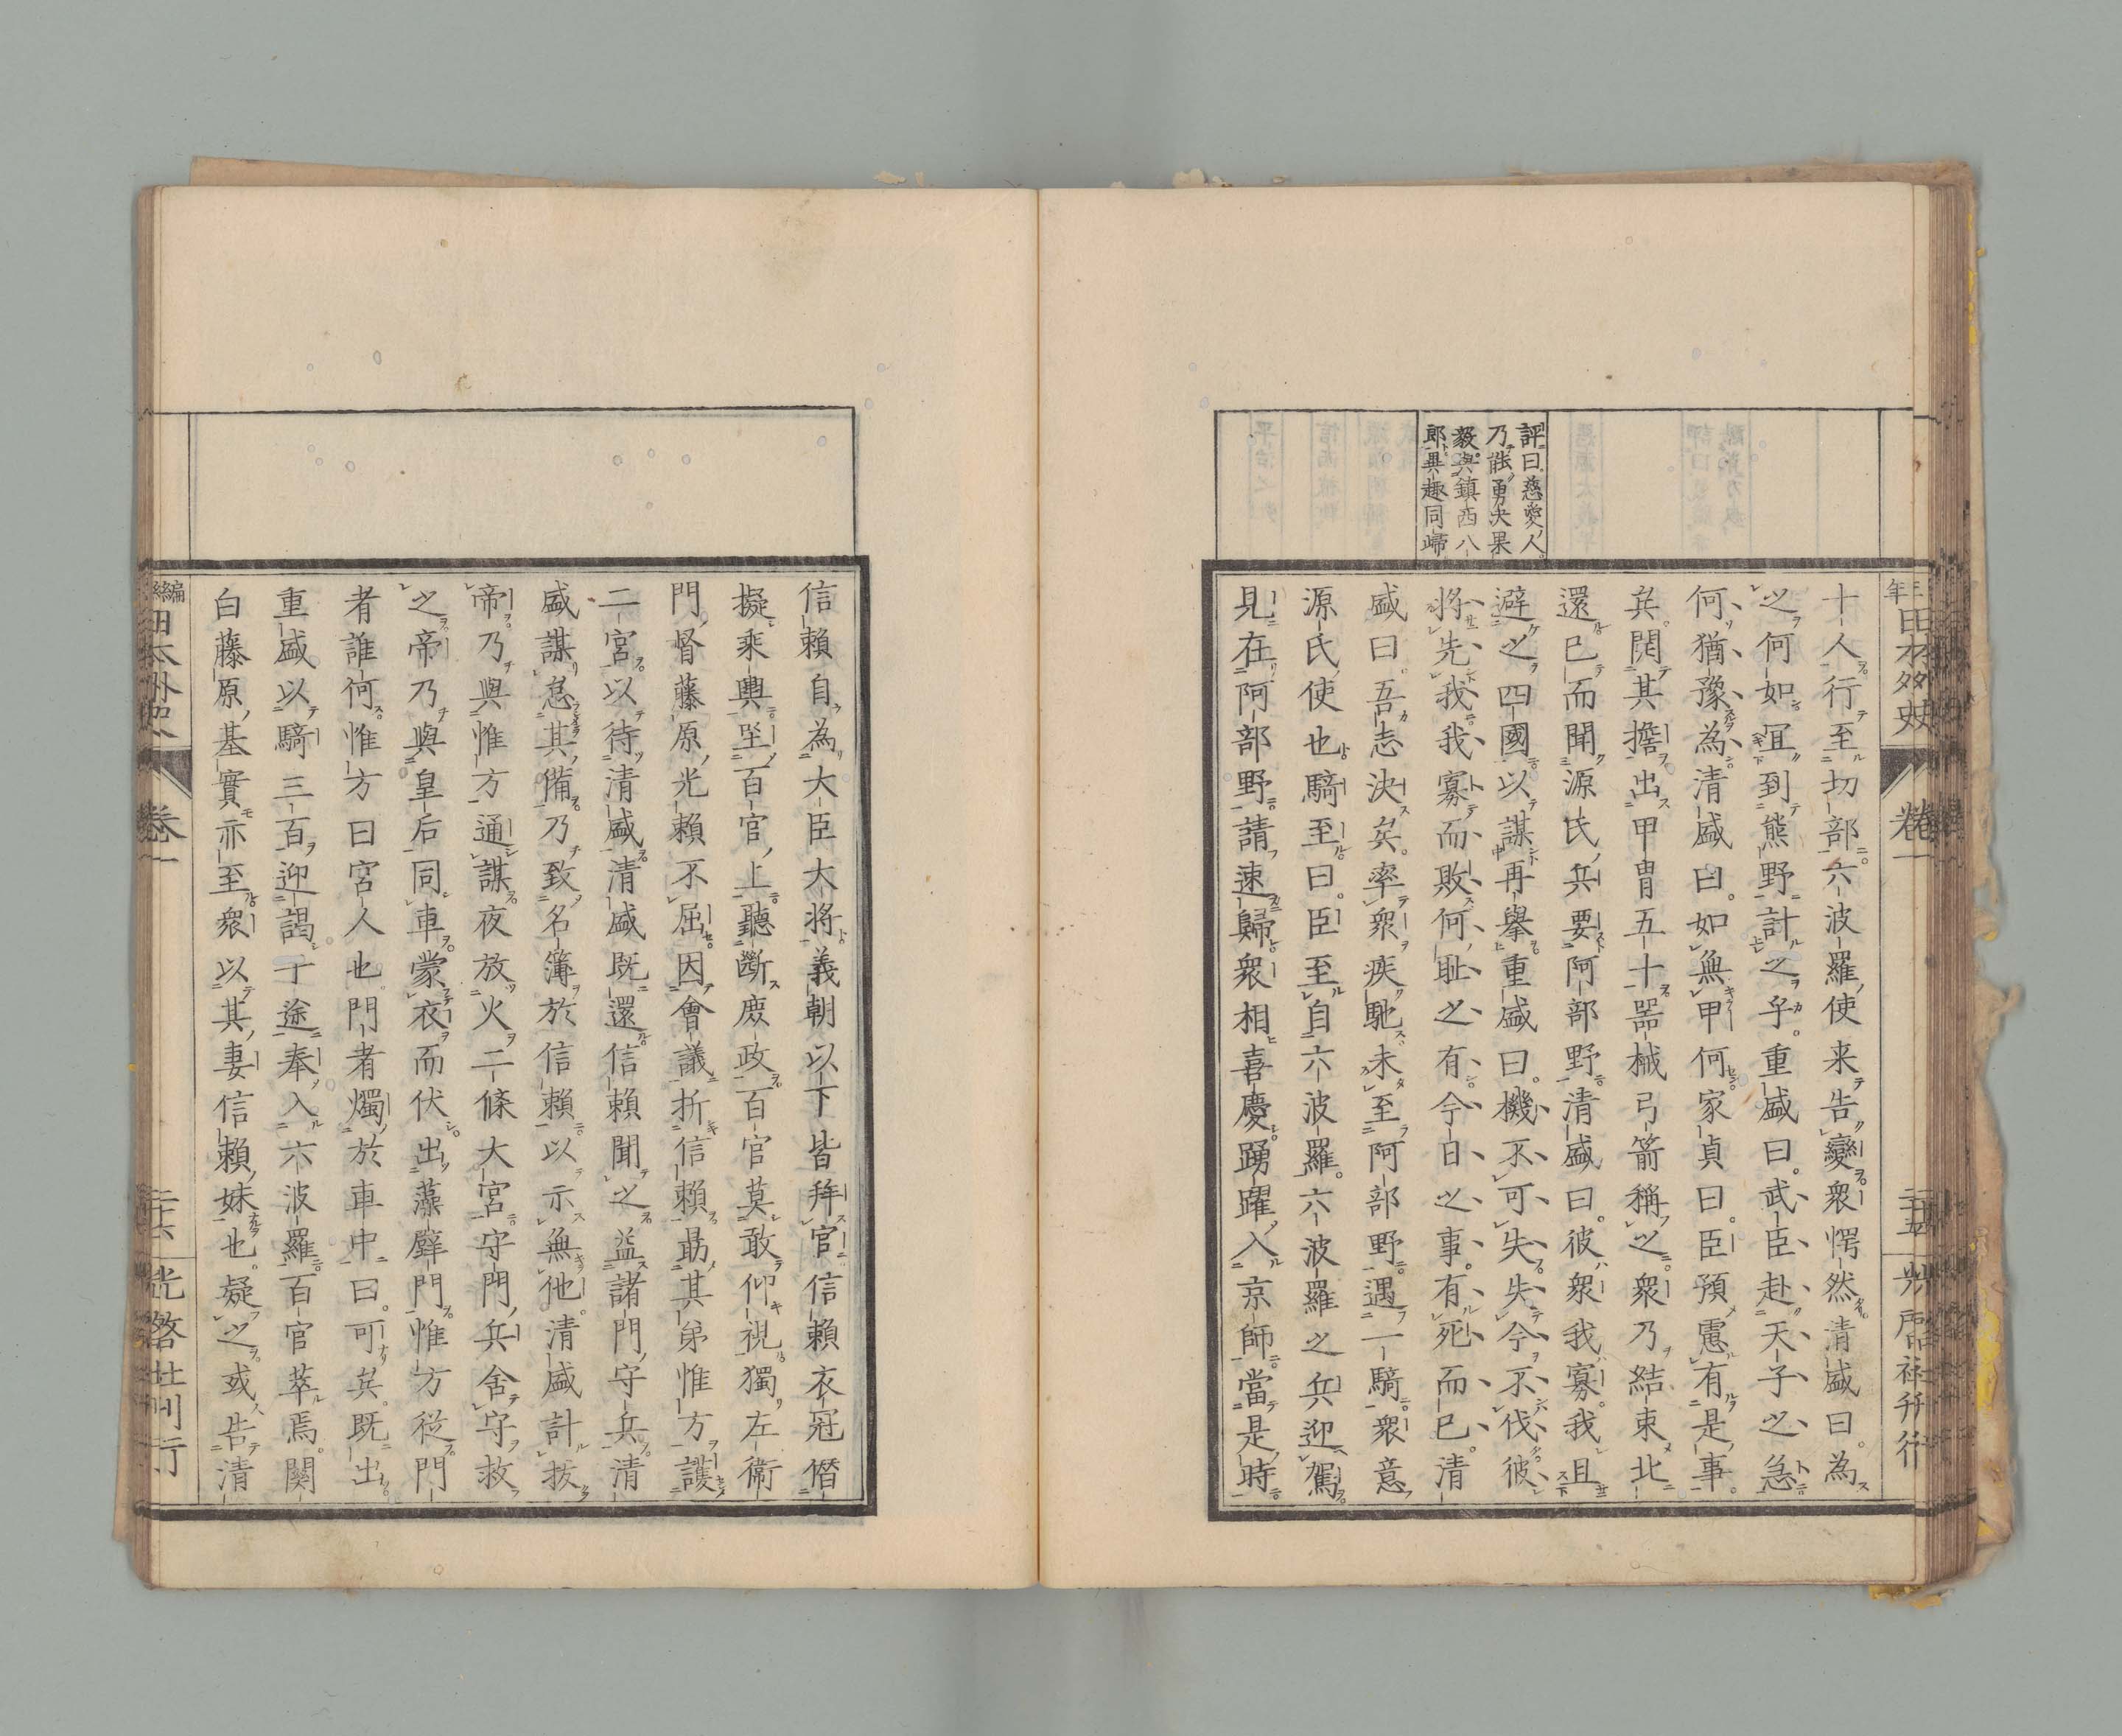 評曰慈愛人
乃能勇決果
毅與鎮西八
郎異趣同歸
十人行至切部六波羅使来告變衆愕然清盛曰為
之何如冝到熊野計之乎重盛曰武臣赴天子之急
何猶豫為清盛曰如無甲何家貞曰臣預慮有是事
矣開其擔出甲冑五十器械弓箭稱之衆乃結束北
還已而聞源氏兵要阿部野清盛曰彼衆我寡我且
避之四國以謀再擧重盛曰機不可失失今不伐彼
將先我我寡而敗何耻之有今日之事有死而已清
盛曰吾志決矣率衆疾馳未至阿部野遇一騎衆意
源氏使也騎至曰臣至自六波羅六波羅之兵迎駕
見在阿部野請速歸衆相喜慶踴躍入京師當是時
卷一
信賴自為大臣大將義朝以下皆拜官信賴衣冠僭
擬乘輿坐百官上聽斷庶政百官莫敢仰視獨左衛
門督藤原光賴不屈因會議折信賴勗其弟惟方護
二宮以待清盛清盛既還信賴聞之益諸門守兵清
盛謀怠其備乃致名簿於信賴以示無他清盛計拔
帝乃與惟方通謀夜放火二條大宮守門兵舍守救
之帝乃與皇后同車蒙衣而伏出藻壁門惟方從門
者誰何惟方曰宮人也門者燭於車中曰可矣既出
重盛以騎三百迎謁于途奉入六波羅百官萃焉關
白藤原基實亦至衆以其妻信賴妹也疑之或告清
卷一
二十六